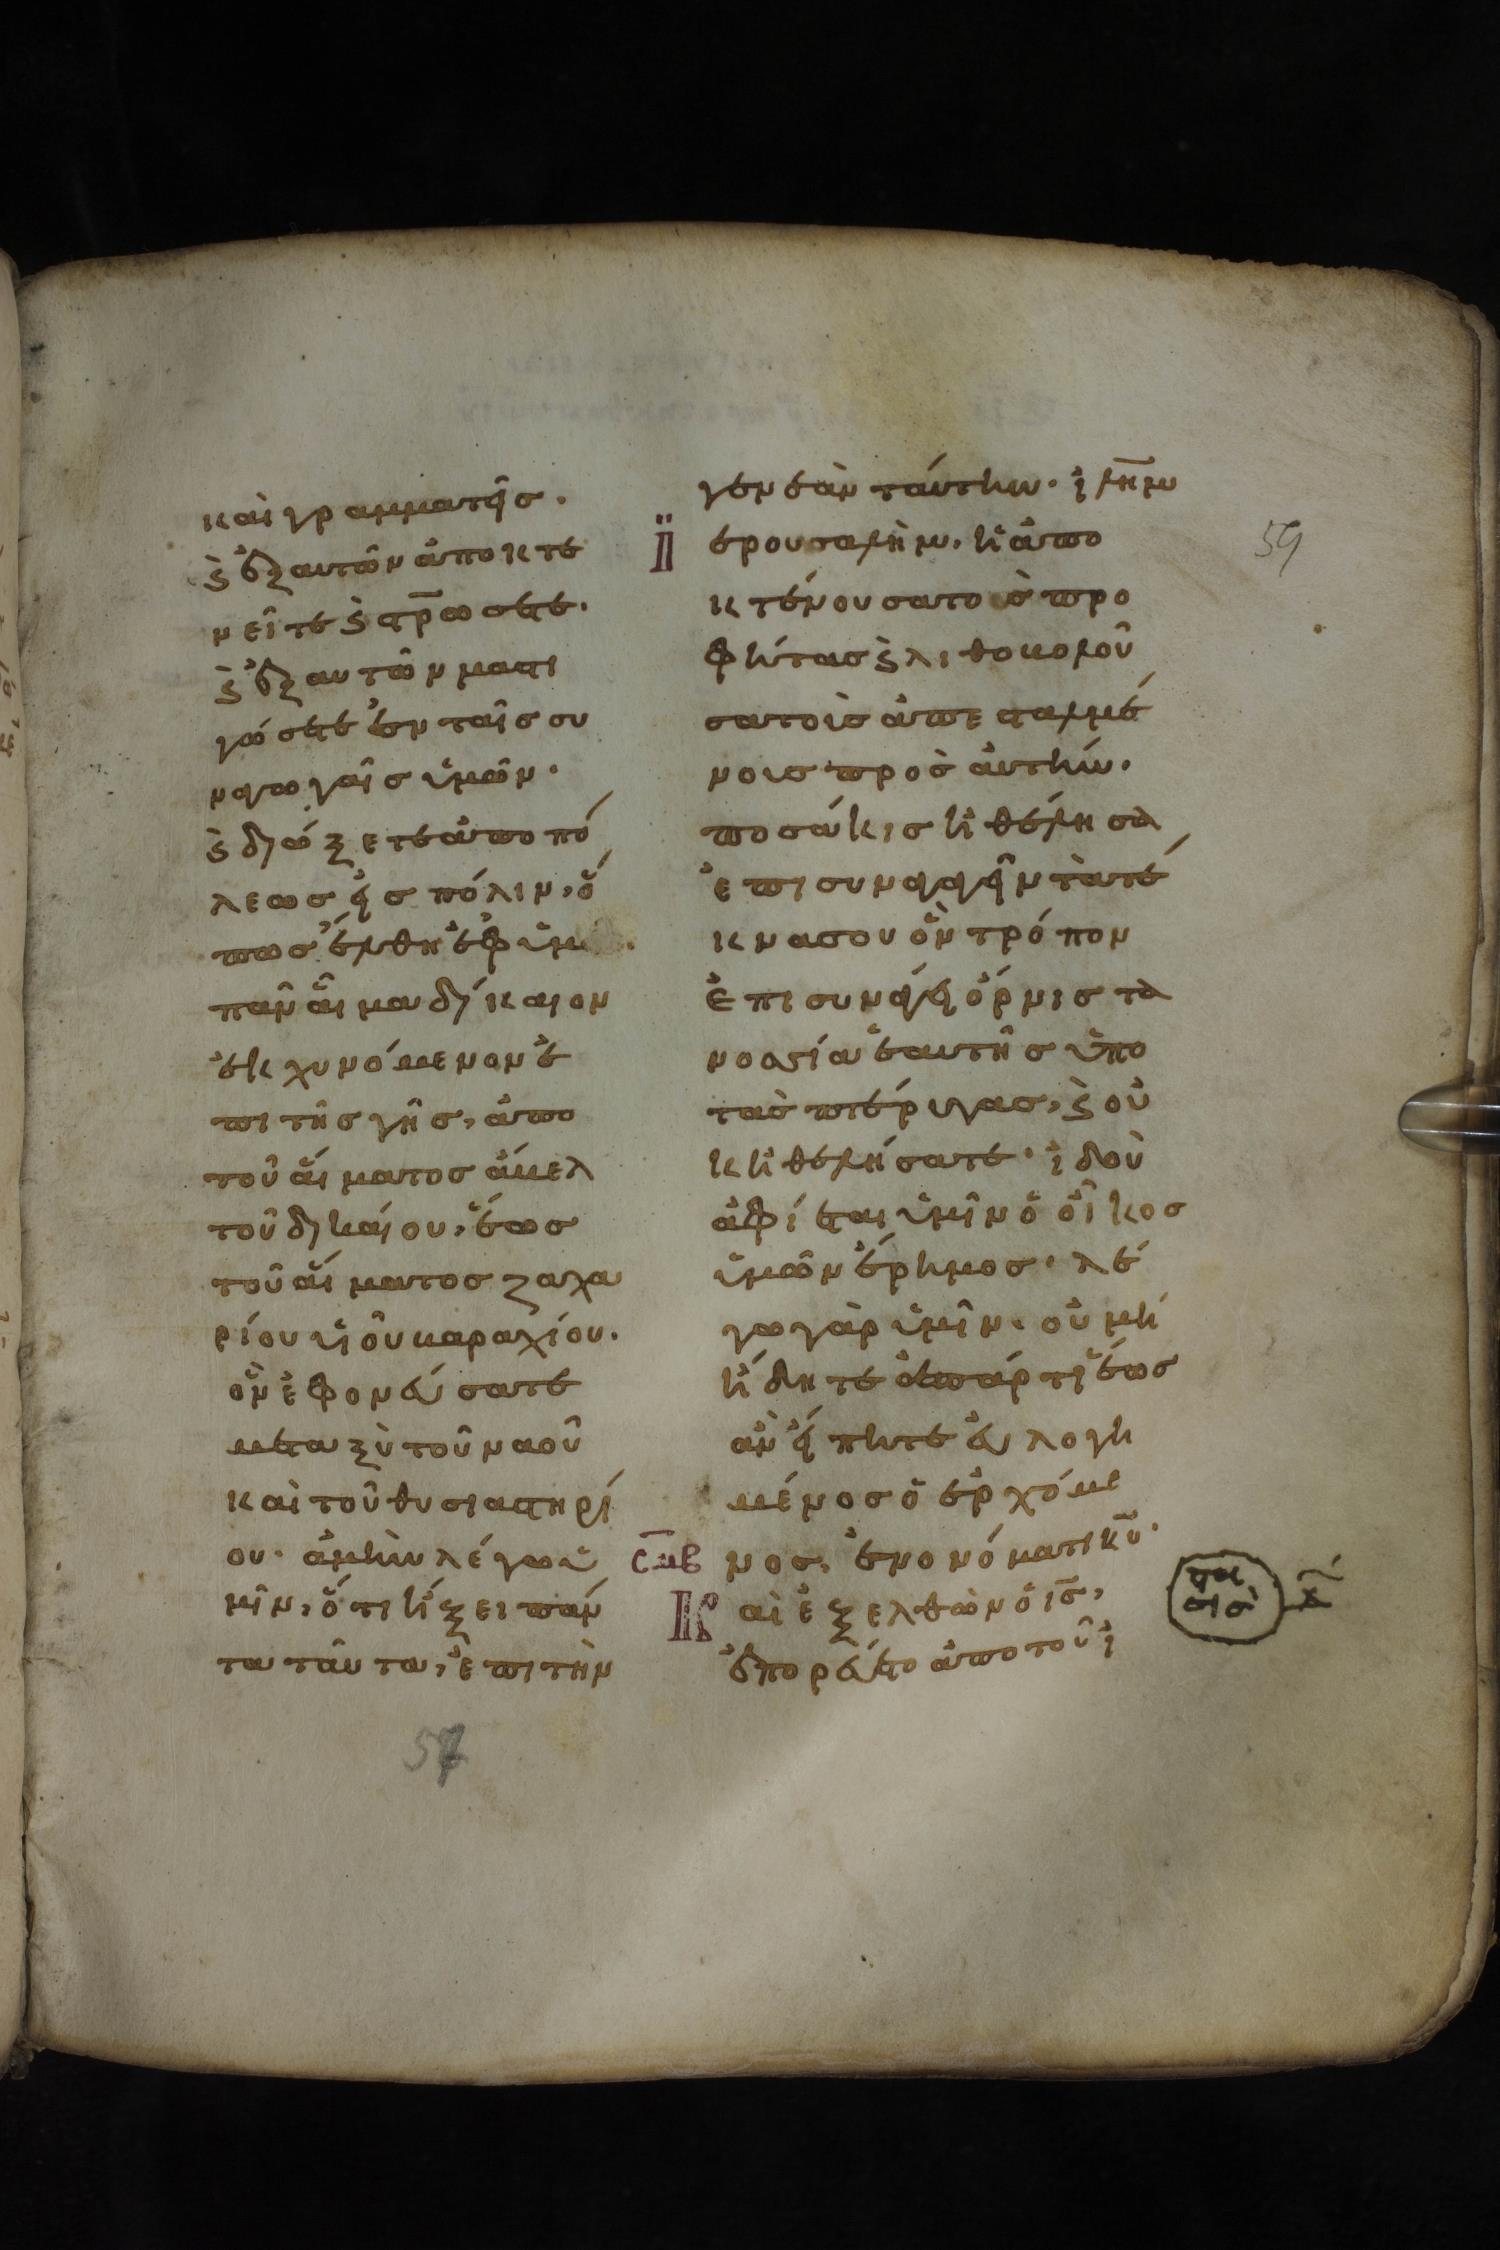 καὶ γραμματεῖσ.
ϗ ἐξ αυτῶν ἀποκτε
νεῖτε ϗ στρ̅ωσετε.
ϗ ἐξ αυτῶν μαστι
γώσετε ἐν ταῖσ συ
ναγωγαῖσ ὑμῶν.
ϗ διώξετε ἀπο πό
λεωσ εἰσ πόλιν, ὅ
πωσ ἔλθη ἐφ ὑμ
πᾶν αἷμα δίκαιον
ἐκχυνόμενον ἐ
πι τῆσ γῆσ, ἀπο
τοῦ αἵματοσ ἄβελ
τοῦ δικαίου, ἕωσ
τοῦ αἵματοσ ζαχα
ρίου υἱοῦ βαραχίου.
ὃν ἐφονεύσατε
μεταξὺ τοῦ ναοῦ
καὶ τοῦ θυσιαστηρί
ου. ἀμὴν λέγω ὑ
μῖν, ὅτι ἥξει πάν
τα ταῦτα, ἐπι τὴν
γενεὰν ταύτην. ἰλη̅μ
ϊερουσαλὴμ, ἡ ἀπο
κτένουσα τοὺσ προ
φήτασ ϗ λιθοβολοῦ
σα τοὺσ ἀπεσταλμέ
νουσ προσ ἀυτήν.
ποσάκισ ἠθέλησὰ
ἐπισυναγαγεῖν τὰ τέ
κνα σου ὃν τρόπον
ἐπισυνάγει ὄρνισ τὰ
νοσσία ἑαυτῆσ ὑπο
τὰσ πτέρυγασ, ϗ οὐ
κ ἠθελήσατε. ἰδοὺ
ἀφίεται ὑμῖν ὁ οἶκοσ
ὑμῶν ἔρημοσ. λέ
γω γὰρ ὑμῖν. οὐ μή
ἤδητε ἀπάρτι ἕωσ
ἂν εἴπητε εὐλογη
μένοσ ὁ ἐρχόμε
σ̅μβ νοσ, ἐν ονόματι κυ̅.
Καὶ ἐξελθὼν ὁ ι̅σ̅,
ἐπορεύετο ἀπο τοῦ ἱ
59
57